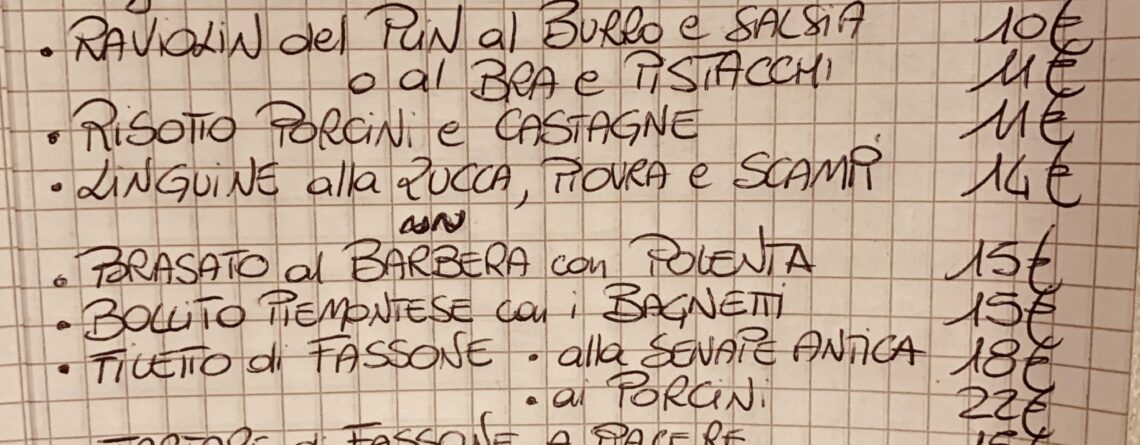 • RAVIOLIN del PLIN al BURRO e SALSIA 10€
o al BRA e PISTACCHI 11€
• RISOTTO PORCINI e CASTAGNE 11€
• LINGUINE alla ZUCCA, PIOVRA e SCAMPI 14€
• BRASATO al BARBERA con POLENTA 15€
• BOLLITO PIEMONTESE con i BAGNETTI 15€
• FILETTO di FASSONE • alla SENAPE ANTICA 18€
• ai PORCINI 22€
TARTARE di FASSONE A PIACERE